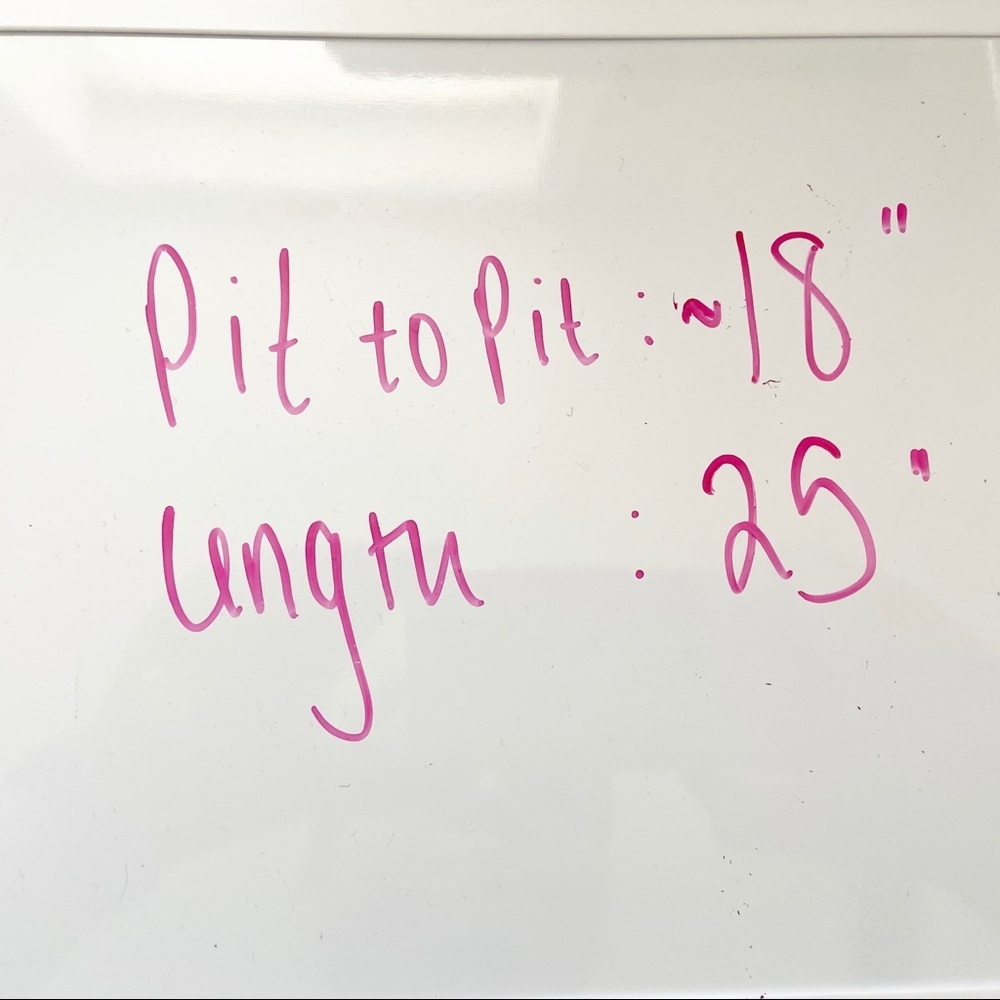 Pit to Pit : ~18"
Length : 25"